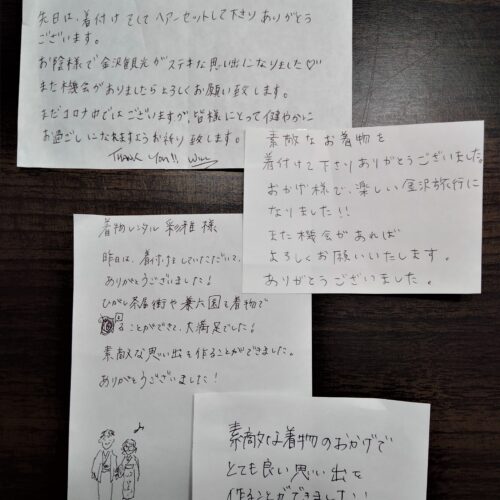 先日は、着付けそしてヘアーセットして下さりありがとう
ございます。
お陰様で金沢観光がステキな思い出になりました♡
また機会がありましたらよろしくお願い致します。
まだコロナ中ではございますが、皆様にとって健やかに
お過ごしになれますようお祈り致します。
Thank You!!
素敵なお着物を
着付けて下さりありがとうございました。
おかげ様で、楽しい金沢旅行に
なりました!!
また機会があれば
よろしくお願いいたします。
ありがとうございました。
着物レンタル 彩雅 様
昨日は、着付けをしていただいて、
ありがとうございました!
ひがし茶屋街や兼六園を着物で
ることができて、大満足でした!
素敵な思い出も作ることができました。
ありがとうございました!
素敵な着物のおかげで
とても良い思い出を
作ることができました!!